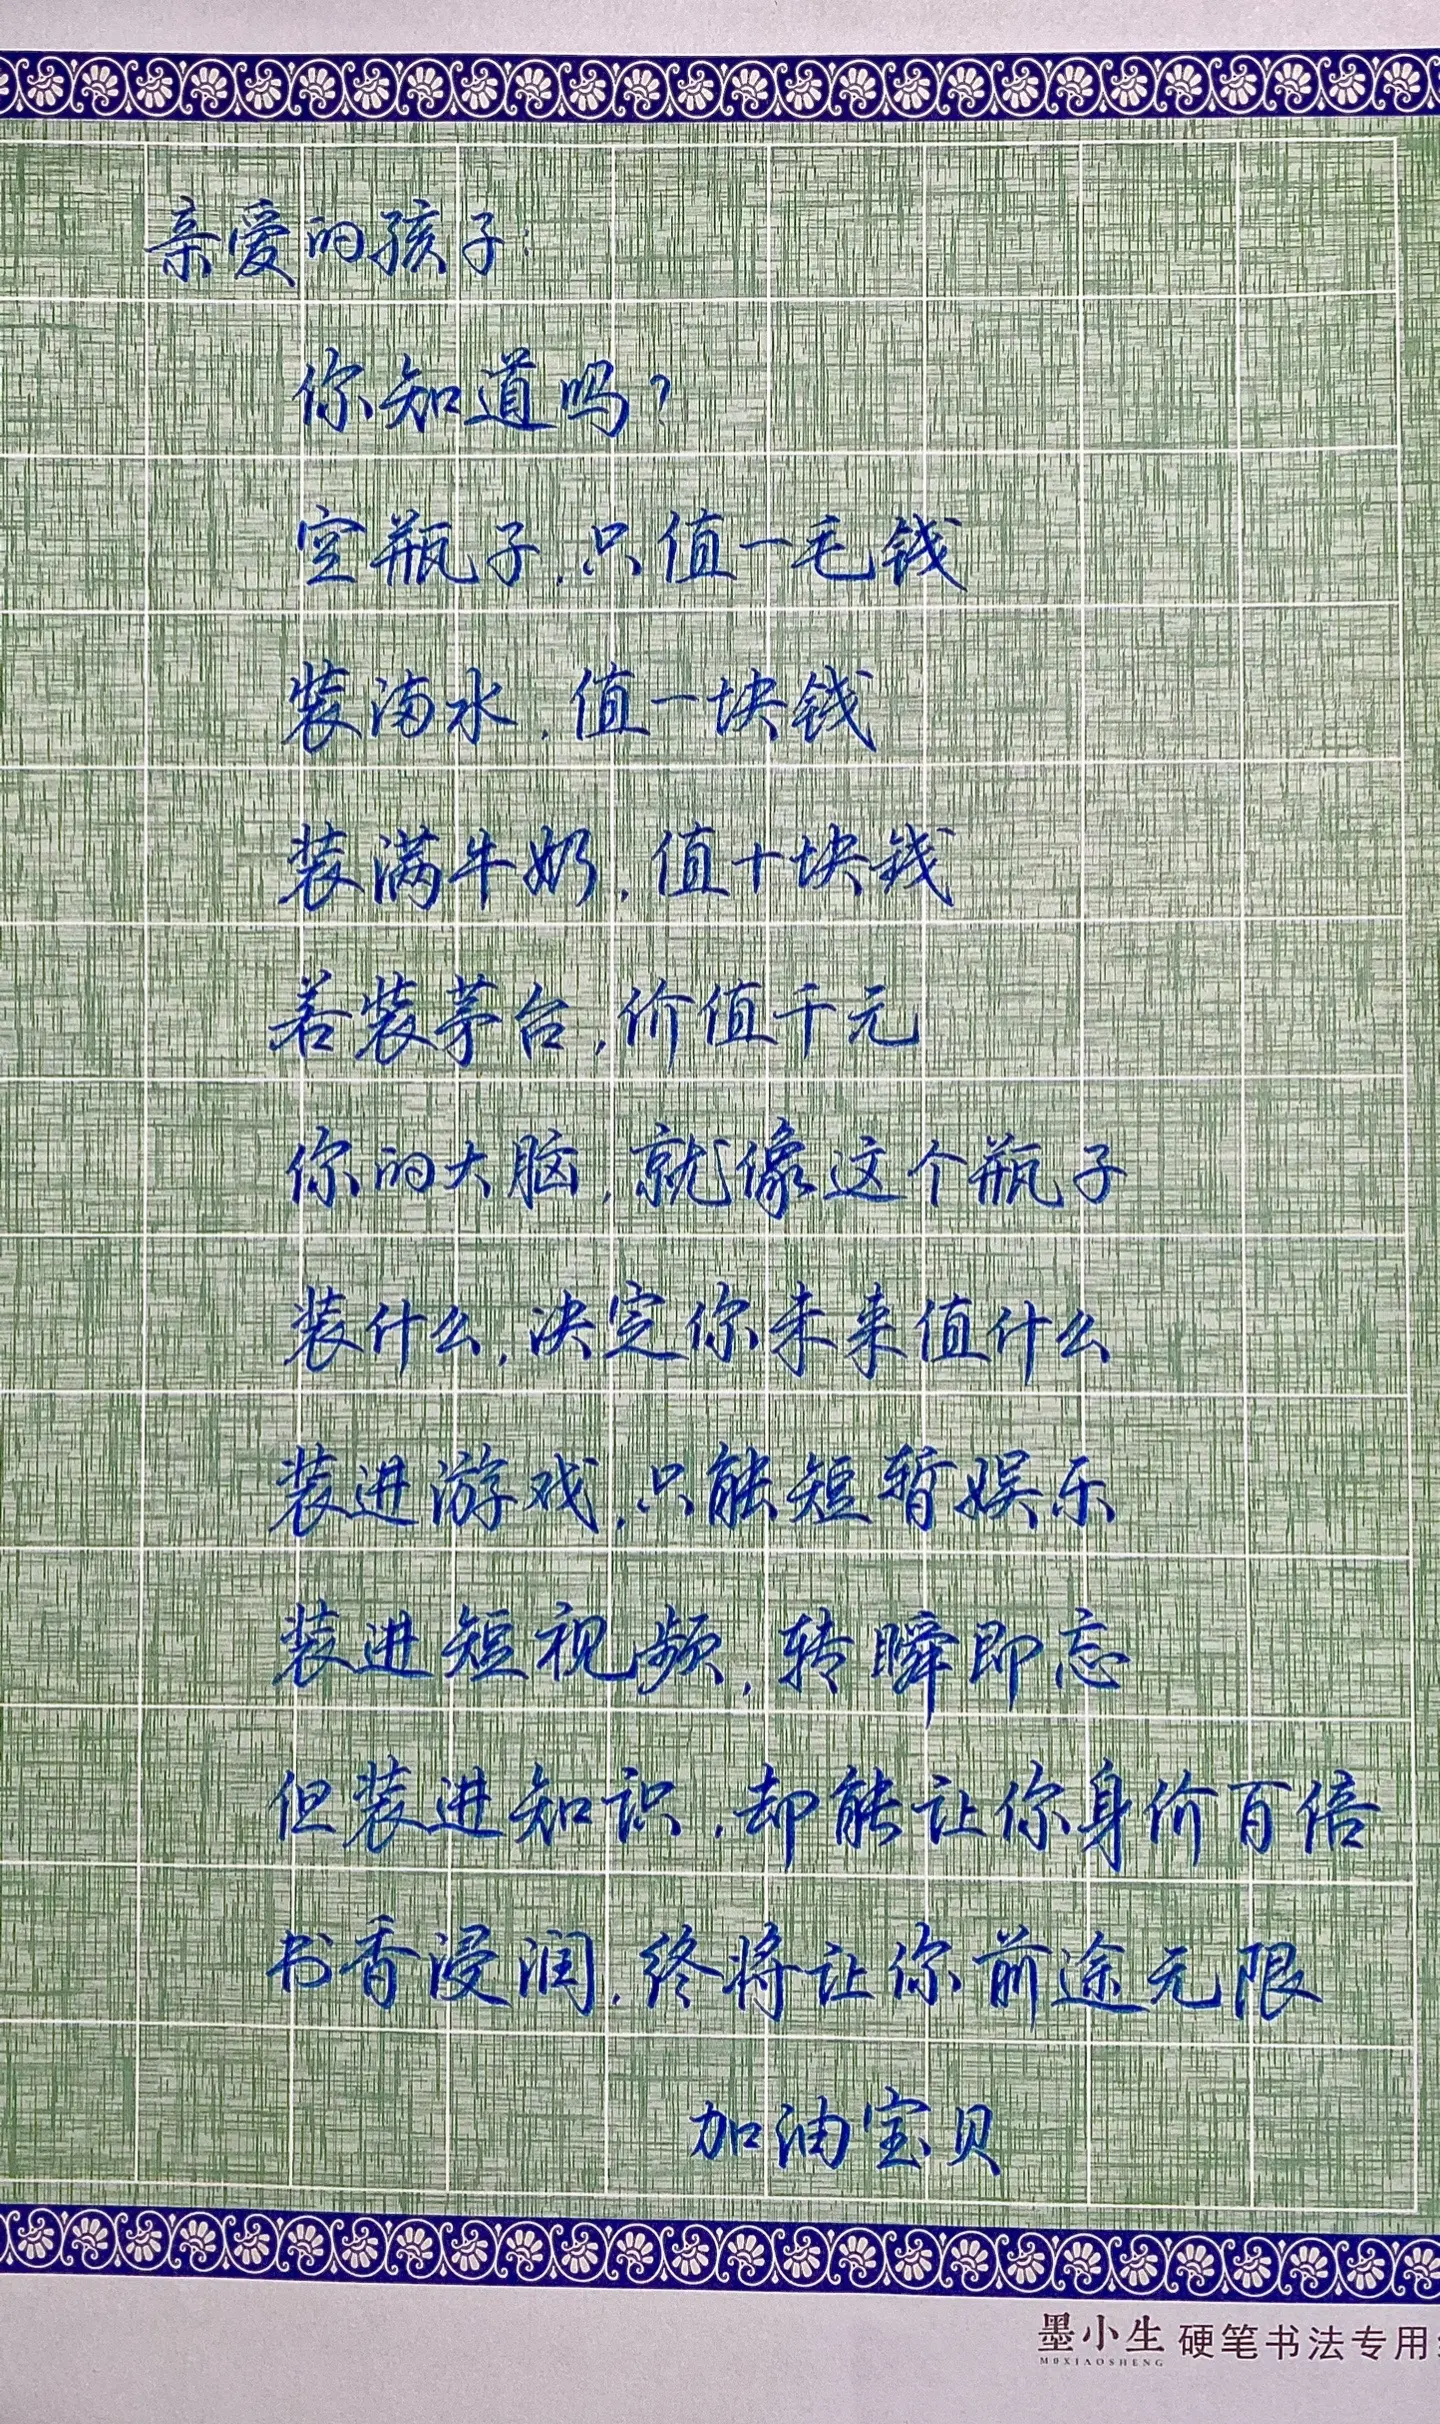 亲爱的孩子:
你知道吗?
空瓶子,只值一毛钱
装满水,值一块钱
装满牛奶,值十块钱
若装茅台,价值千元
你的大脑,就像这个瓶子
装什么,决定你未来值什么
装进游戏,只能短暂娱乐
装进短视频,转瞬即忘
但装进知识,却能让你身价百倍
书香浸润,终将让你前途无限
加油宝贝
墨小生 硬笔书法专用
MOXIAOSHENG